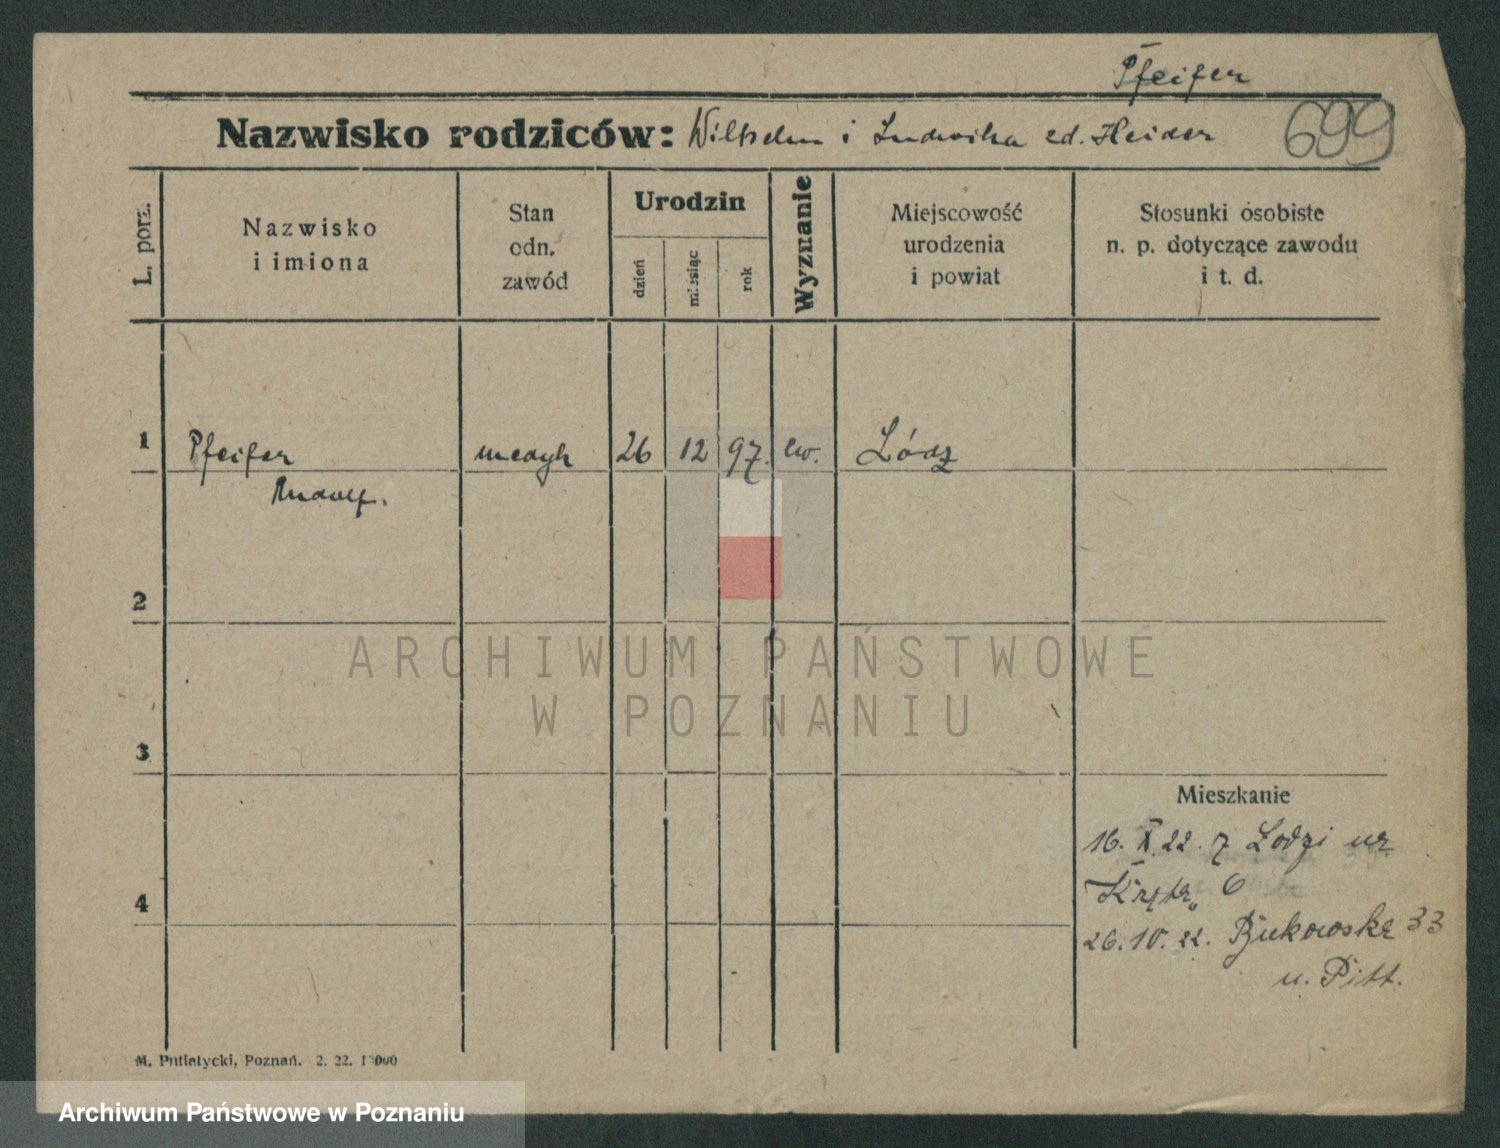 Pfeifer
Nazwisko rodziców: Wilhelm i Ludwika zd. Heider
699
L. porz.
Nazwisko
i imiona
Stan
odn.
zawód
Urodzin
dzień
miesiąc
rok
Wyznanie
Miejscowość
urodzenia
i powiat
Stosunki osobiste
n. p. dotyczące zawodu
i t. d.
1
Pfeifer
Rudolf.
medyk
26
12
97.
ew.
Łódz
2
3
4
Mieszkanie
16. X 22. z Łodzi ul
6
26. 10. 22. Bukowska 33
u. Pitt.
M. Putiatycki, Poznań. 2. 22.
ARCHIWUM PAŃSTWOWE
W POZNANIU
Archiwum Państwowe w Poznaniu